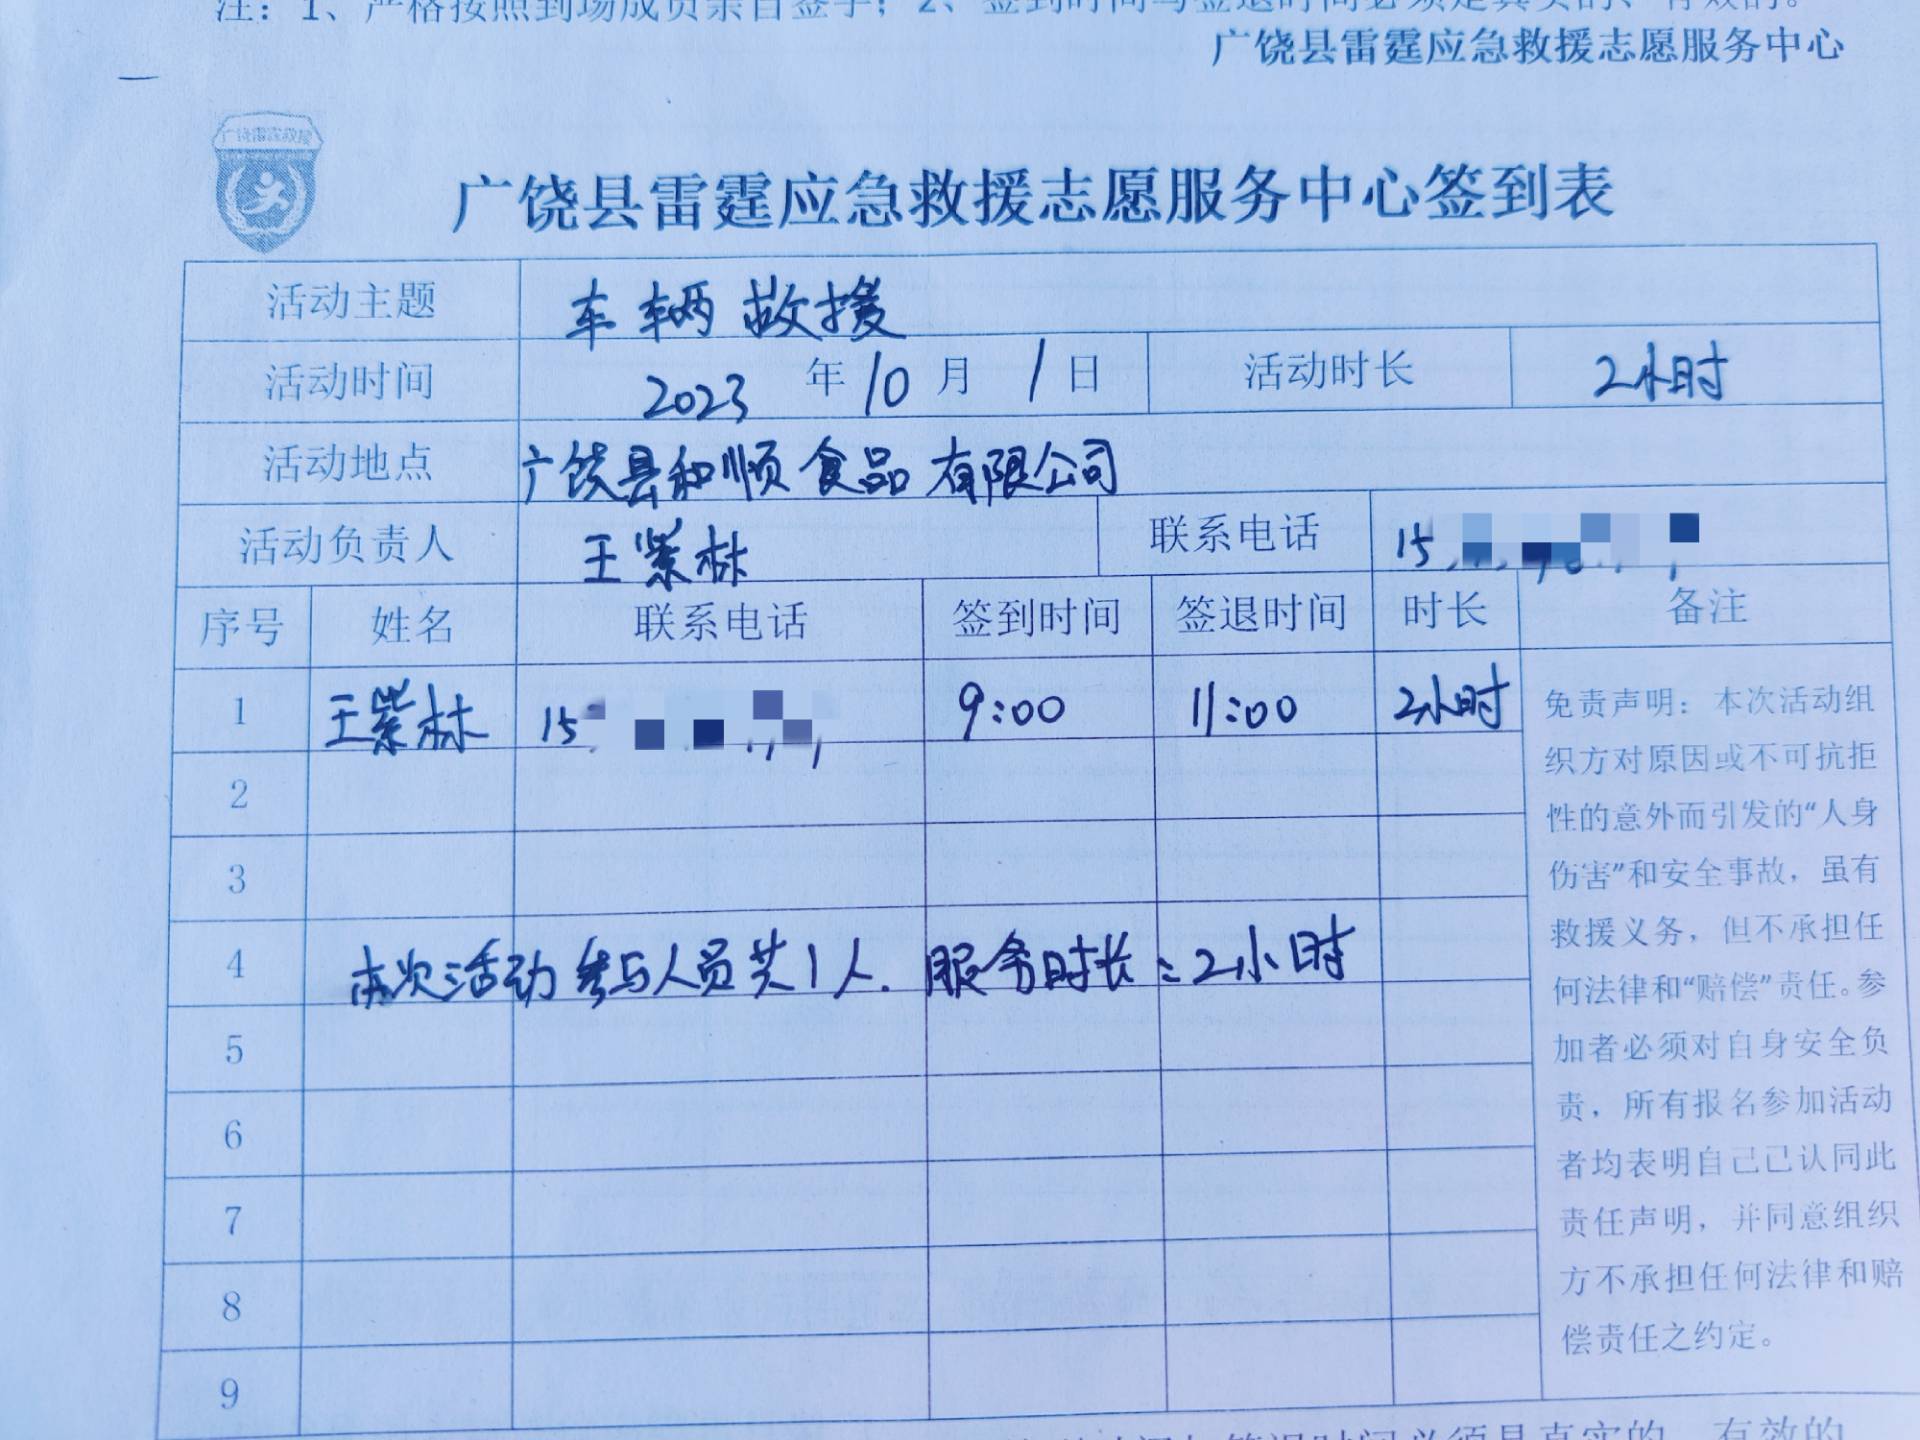 注：1、严格按照到场成员亲自签字；2、签到时间与签退时间必须是真实的、有效的。
广饶县雷霆应急救援志愿服务中心
广饶雷霆救援
广饶县雷霆应急救援志愿服务中心签到表
活动主题 车辆救援
活动时间 2023 年 10 月 1 日 活动时长 2小时
活动地点 广饶县和顺食品有限公司
活动负责人 王紫林 联系电话 15
序号 姓名 联系电话 签到时间 签退时间 时长 备注
1 王紫林 15 9:00 11:00 2小时
2
3
4 本次活动参与人员共1人. 服务时长:2小时
5
6
7
8
9
免责声明：本次活动组
织方对原因或不可抗拒
性的意外而引发的“人身
伤害”和安全事故，虽有
救援义务，但不承担任
何法律和“赔偿”责任。参
加者必须对自身安全负
责，所有报名参加活动
者均表明自己已认同此
责任声明，并同意组织
方不承担任何法律和赔
偿责任之约定。
签退时间必须是真实的、有效的